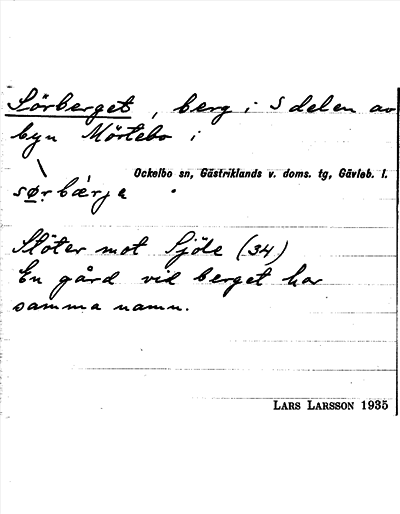 Sörberget, berg i S delen av
byn Mörtebo i
Ockelbo sn, Gästriklands v. doms. tg, Gävleb. l.
Stöter mot Sjöle (34)
En gård vid berget har
samma namn.
LARS LARSSON 1935